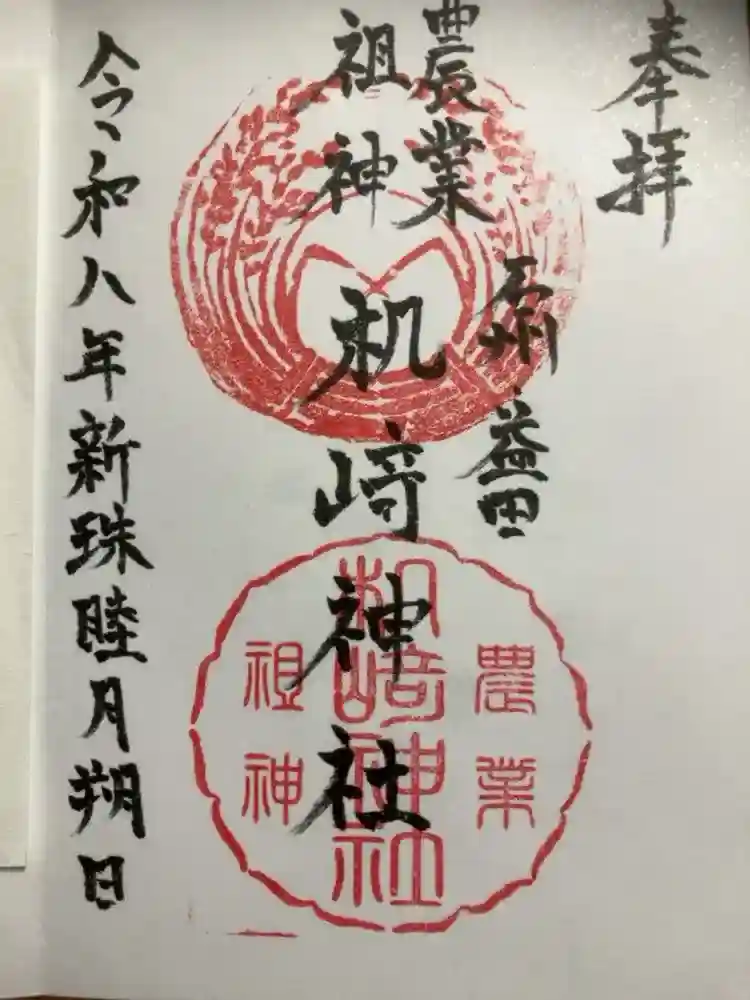 奉拝
農業
祖神
石州 益田
机崎神社
令和八年新珠睦月朔日
農業
机崎神社
祖神